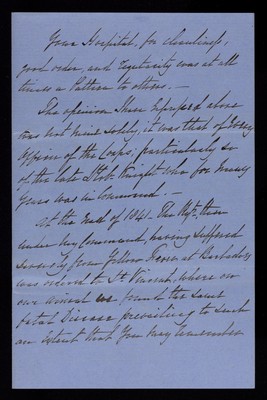 Your Hospital, for cleanliness,
good order, and regularity was at all
times a Pattern to others. —
The opinion I have expressed above
was not mine solely, it was that of Every
Officer of the Corps; particularly so
of the late Lt Col. Knight who for many
Years was in Command. —
At the End of 1841. The Regt. then
under my Command, having suffered
severely from Yellow Fever at Barbadoes
was ordered to St. Vincent, where on
our arrival we found the same
fatal Disease prevailing to such
an extent that You may remember